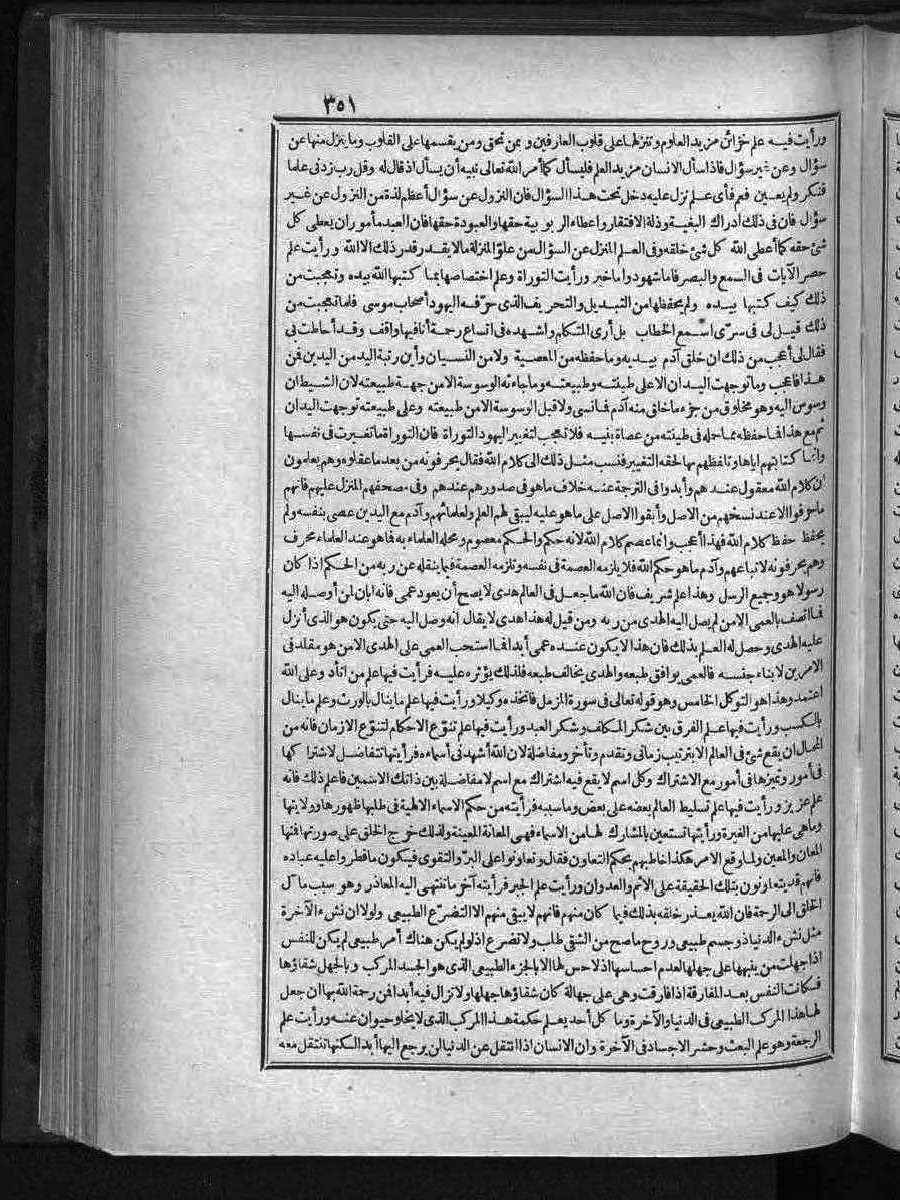 ٣٥١
ورأيت فيه علم خزائن مزيد العلوم وتنزلها على قلوب العارفين و بمن تحقق ومن يقسمها على القلوب وما ينزل منها عن
سؤال وعن غير سؤال فاذا سأل الانسان مزيد العلم فليسأل كما أمر الله تعالى نبيه أن يسأل اذ قال له وقل رب زدنى علما
فنكر ولم يعين فعم فأى علم نزل عليه دخل تحت هذا السؤال فان النزول عن سؤال أعظم لذة من النزول عن غير
سؤال فان فى ذلك ادراك البغية وذلة الافتقار واعطاء الربوبية حقها والعبودة حقها فان العبد مأمور ان يعطى كل
شئ حقه كما أعطى الله كل شئ خلقه وفى العلم المنزل عن السؤال من علو المنزلة ما لا يقدر قدر ذلك الا الله ورأيت علم
حصر الآيات فى السمع والبصر فاما شهود واما خبر ورأيت التوراة وعلم اختصاصها بما كتبها الله بيده وتعجبت من
ذلك كيف كتبها بيده ولم يحفظها من التبديل والتحريف الذى حرفه اليهود أصحاب موسى فلما تعجبت من
ذلك قيل لى فى سرى اسمع الخطاب بل أرى المتكلم واشهده فى اتساع رحمة أنا فيها واقف وقد أحاطت بى
فقال لى أعجب من ذلك ان خلق آدم بيديه وما حفظه من المعصية ولا من النسيان وأين رتبة اليد من اليدين فمن
هذا فاعجب وما توجهت اليدان الا على طينته وطبيعته وما جاءته الوسوسة الا من جهة طبيعته لان الشيطان
وسوس اليه وهو مخلوق من جزء ما خلق منه آدم فما نسى ولا قبل الوسوسة الا من طبيعته وعلى طبيعته توجهت اليدان
ثم مع هذا فما حفظه مما حمله فى طينته من عصاة بنيه فلا تعجب لتغيير اليهود التوراة فان التوراة ما تغيرت فى نفسها
وانما كتابتهم اياها وتلفظهم بها لحقه التغيير فنسب مثل ذلك الى كلام الله فقال يحرفونه من بعد ما عقلوه وهم يعلمون
ان كلام الله معقول عندهم وأبدوا فى الترجمة عنه خلاف ما هو فى صدورهم عندهم وفى مصحفهم المنزل عليهم فانهم
ما حرفوا الا عند نسخهم من الاصل وأبقوا الاصل على ما هو عليه ليبقى لهم العلم ولعلمائهم وآدم مع اليدين عصى بنفسه ولم
يحفظ حفظ كلام الله فهذا أعجب وانما عصم كلام الله لانه حكم والحكم معصوم ومحله العلماء به فما هو عند العلماء محرف
وهم يحرفونه لاتباعهم وآدم ما هو حكم الله فلا يلزمه العصمة فى نفسه وتلزمه العصمة فيما ينقله عن ربه من الحكم اذا كان
رسولا هو وجميع الرسل وهذا علم شريف فان الله ما جعل فى العالم هدى لا يصح أن يعود عمى فانه ابان لمن أوصله اليه
فما اتصف بالعمى الا من لم يصل اليه الهدى من ربه ومن قيل له هذا هدى لا يقال انه وصل اليه حتى يكون هو الذى أنزل
عليه الهدى وحصل له العلم بذلك فان هذا لا يكون عنده عمى أبدا فما استحب العمى على الهدى الا من هو مقلد فى
الامرين لابناء جنسه فالعمى يوافق طبعه والهدى يخالف طبعه فلذلك يؤثره عليه فرأيت فيها علم من اتأد وعلى الله
اعتمد وهذا هو التوكل الخامس وهو قوله تعالى فى سورة المزمل فاتخذه وكيلا ورأيت فيها علم ما ينال بالورث وعلم ما ينال
بالكسب ورأيت فيها علم الفرق بين شكر المكلف وشكر العبد ورأيت فيها علم تنوع الاحكام لتنوع الازمان فانه من
المحال ان يقع شئ فى العالم الا بترتيب زمانى وتقدم وتأخر ومفاضلة لان الله أشهدنى أسماءه فرأيتها تتفاضل لاشتراكها
فى أمور وتميزها فى أمور مع الاشتراك وكل اسم لا يقع فيه اشتراك مع اسم لا مفاضلة بين ذانك الاسمين فاعلم ذلك فانه
علم عزيز ورأيت فيها علم تسليط العالم بعضه على بعض وما سببه فرأيته من حكم الاسماء الالهية فى طلبها ظهورها وولايتها
وما هى عليها من الغيرة ورأيتها تستعين بالمشارك لها من الاسماء فهى المعانة المعينة ولذلك خرج الخلق على صورتها فمنها
المعان والمعين ولما وقع الامر هكذا خاطبهم بحكم التعاون فقال وتعاونوا على البر والتقوى فيكون ما فطروا عليه عباده
فانهم قد يتعاونون بتلك الحقيقة على الاثم والعدوان ورأيت علم الجبر فرأيته آخر ما تنتهى اليه المعاذر وهو سبب مآل
الخلق الى الرحمة فان الله يعذر خلقه بذلك فيما كان منهم فانهم لا يبقى منهم الا التضرع الطبيعى ولولا ان نشء الآخرة
مثل نشء الدنيا ذو جسم طبيعى وروح ما صح من الشقى طلب ولا تضرع اذ لو لم يكن هناك أمر طبيعى لم يكن للنفس
اذا جهلت من ينبهها على جهلها لعدم احساسها اذ لا حس لها الا بالجزء الطبيعى الذى هو الجسد المركب وبالجهل شقاؤها
فكانت النفس بعد المفارقة اذا فارقت وهى على جهالة كان شقاؤها جهلها ولا تزال فيه أبدا فمن رحمة الله بها ان جعل
لها هذا المركب الطبيعى فى الدنيا والآخرة وما كل أحد يعلم حكمة هذا المركب الذى لا يخلو حيوان عنه ورأيت علم
الرجعة وهو علم البعث وحشر الاجساد فى الآخرة وان الانسان اذا انتقل عن الدنيا لن يرجع اليها أبدا لكنها تنتقل معه